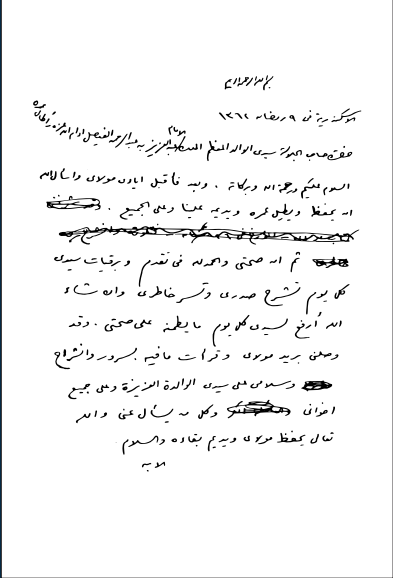 بسم الله الرحمن الرحيم
الاسكندرية في ٩ رمضان ١٣٦٢
حضرة صاحب الجلالة سيدي الوالد المعظم الملك الامام عبد العزيز بن عبد الرحمن الفيصل ادام الله عزه وأطال عمره
السلام عليكم ورحمة الله وبركاته . وبعد فأقبل ايادي مولاي واسأل الله
ان يحفظه ويطيل عمره ويديمه علينا وعلى الجميع .
ثم ان صحتي والحمد لله في تقدم وبرقيات سيدي
كل يوم تشرح صدري وتسر خاطري وان شاء
الله أرفع لسيدي كل يوم ما يطمنه على صحتي . وقد
وصلني بريد مولاي وقرأت ما فيه بسرور وانشراح
وسلامي على سيدتي الوالدة العزيزة وعلى جميع
اخواني وكل من يسأل عني والله
تعالى يحفظ مولاي ويديم بقاءه والسلام
الابن